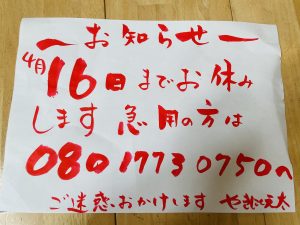 ーお知らせー
4月16日までお休み
します 急用の方は
080 1773 0750へ
ご迷惑おかけします